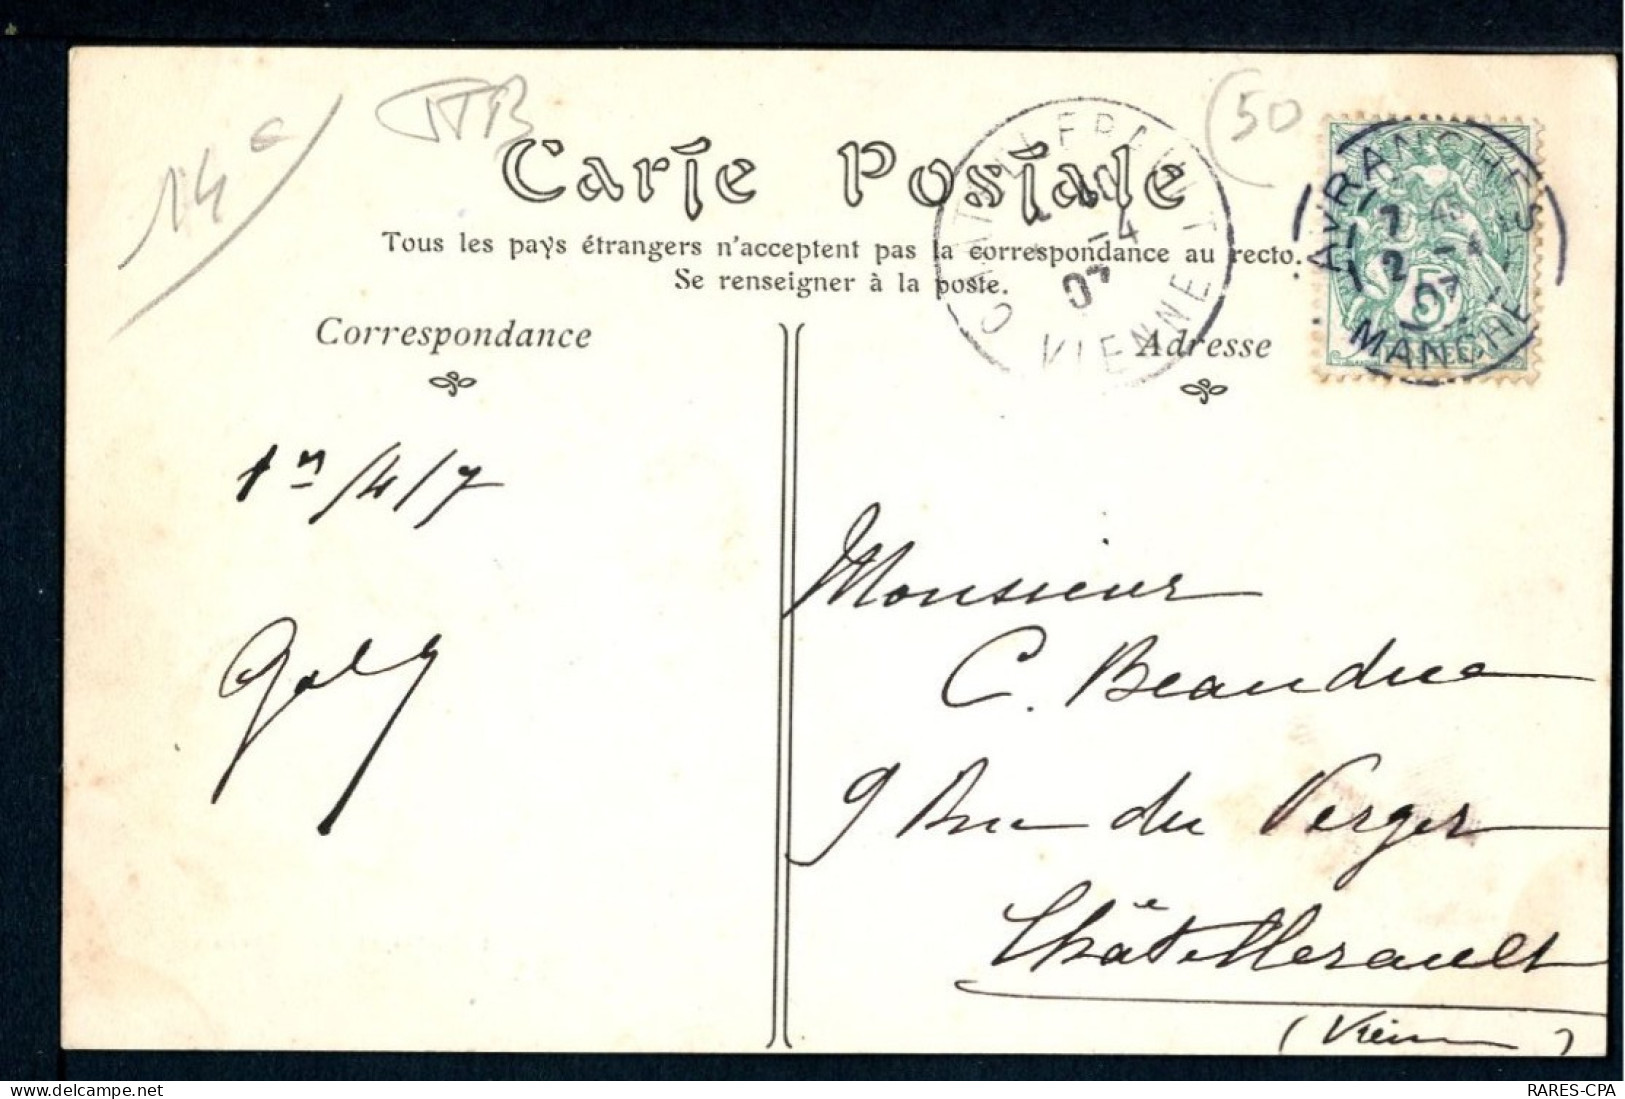 14€
TTB
(50
Carte Postale
Tous les pays étrangers n'acceptent pas la correspondance au recto.
Se renseigner à la poste.
CHATELLERAULT
-4
07
VIENNE
AVRANCHES
7
2 -4
07
MANCHE
5
Correspondance
Adresse
1er/4/7
Monsieur
C. Beauduc
9 Rue du Verger
Châtellerault
(Vienne)
RARES-CPA